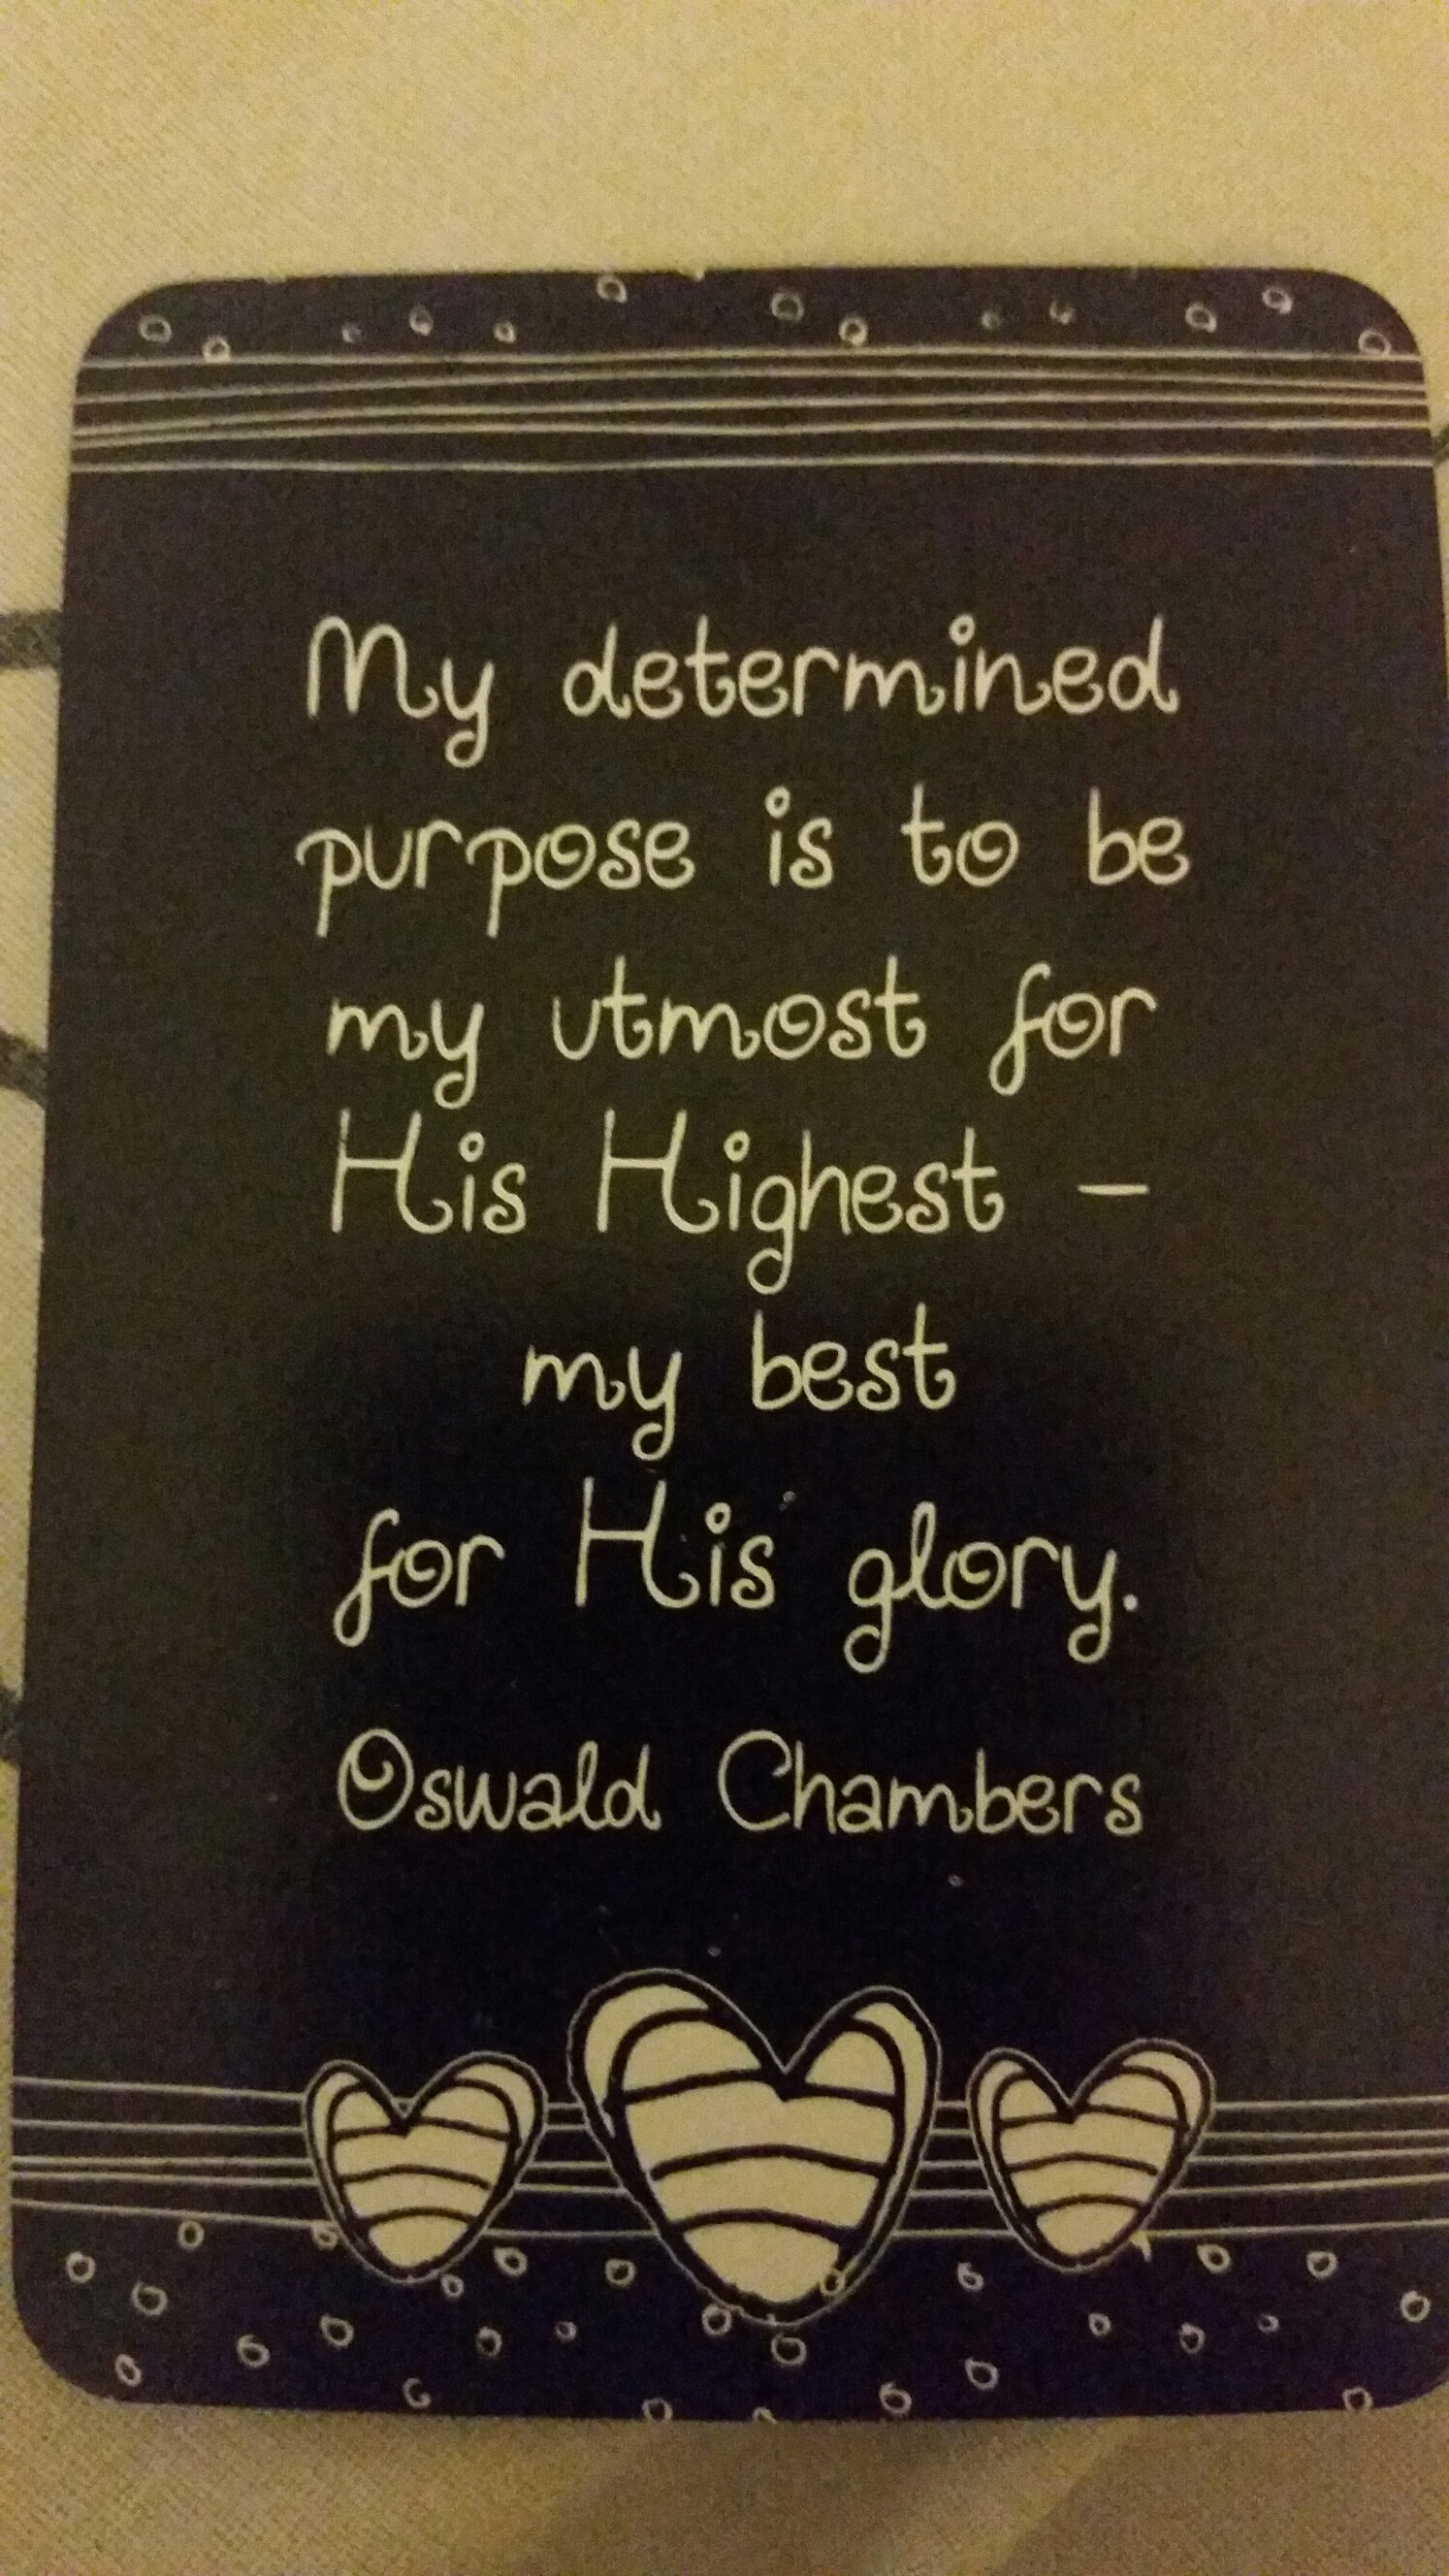 My determined
purpose is to be
my utmost for
His Highest –
my best
for His glory.
Oswald Chambers